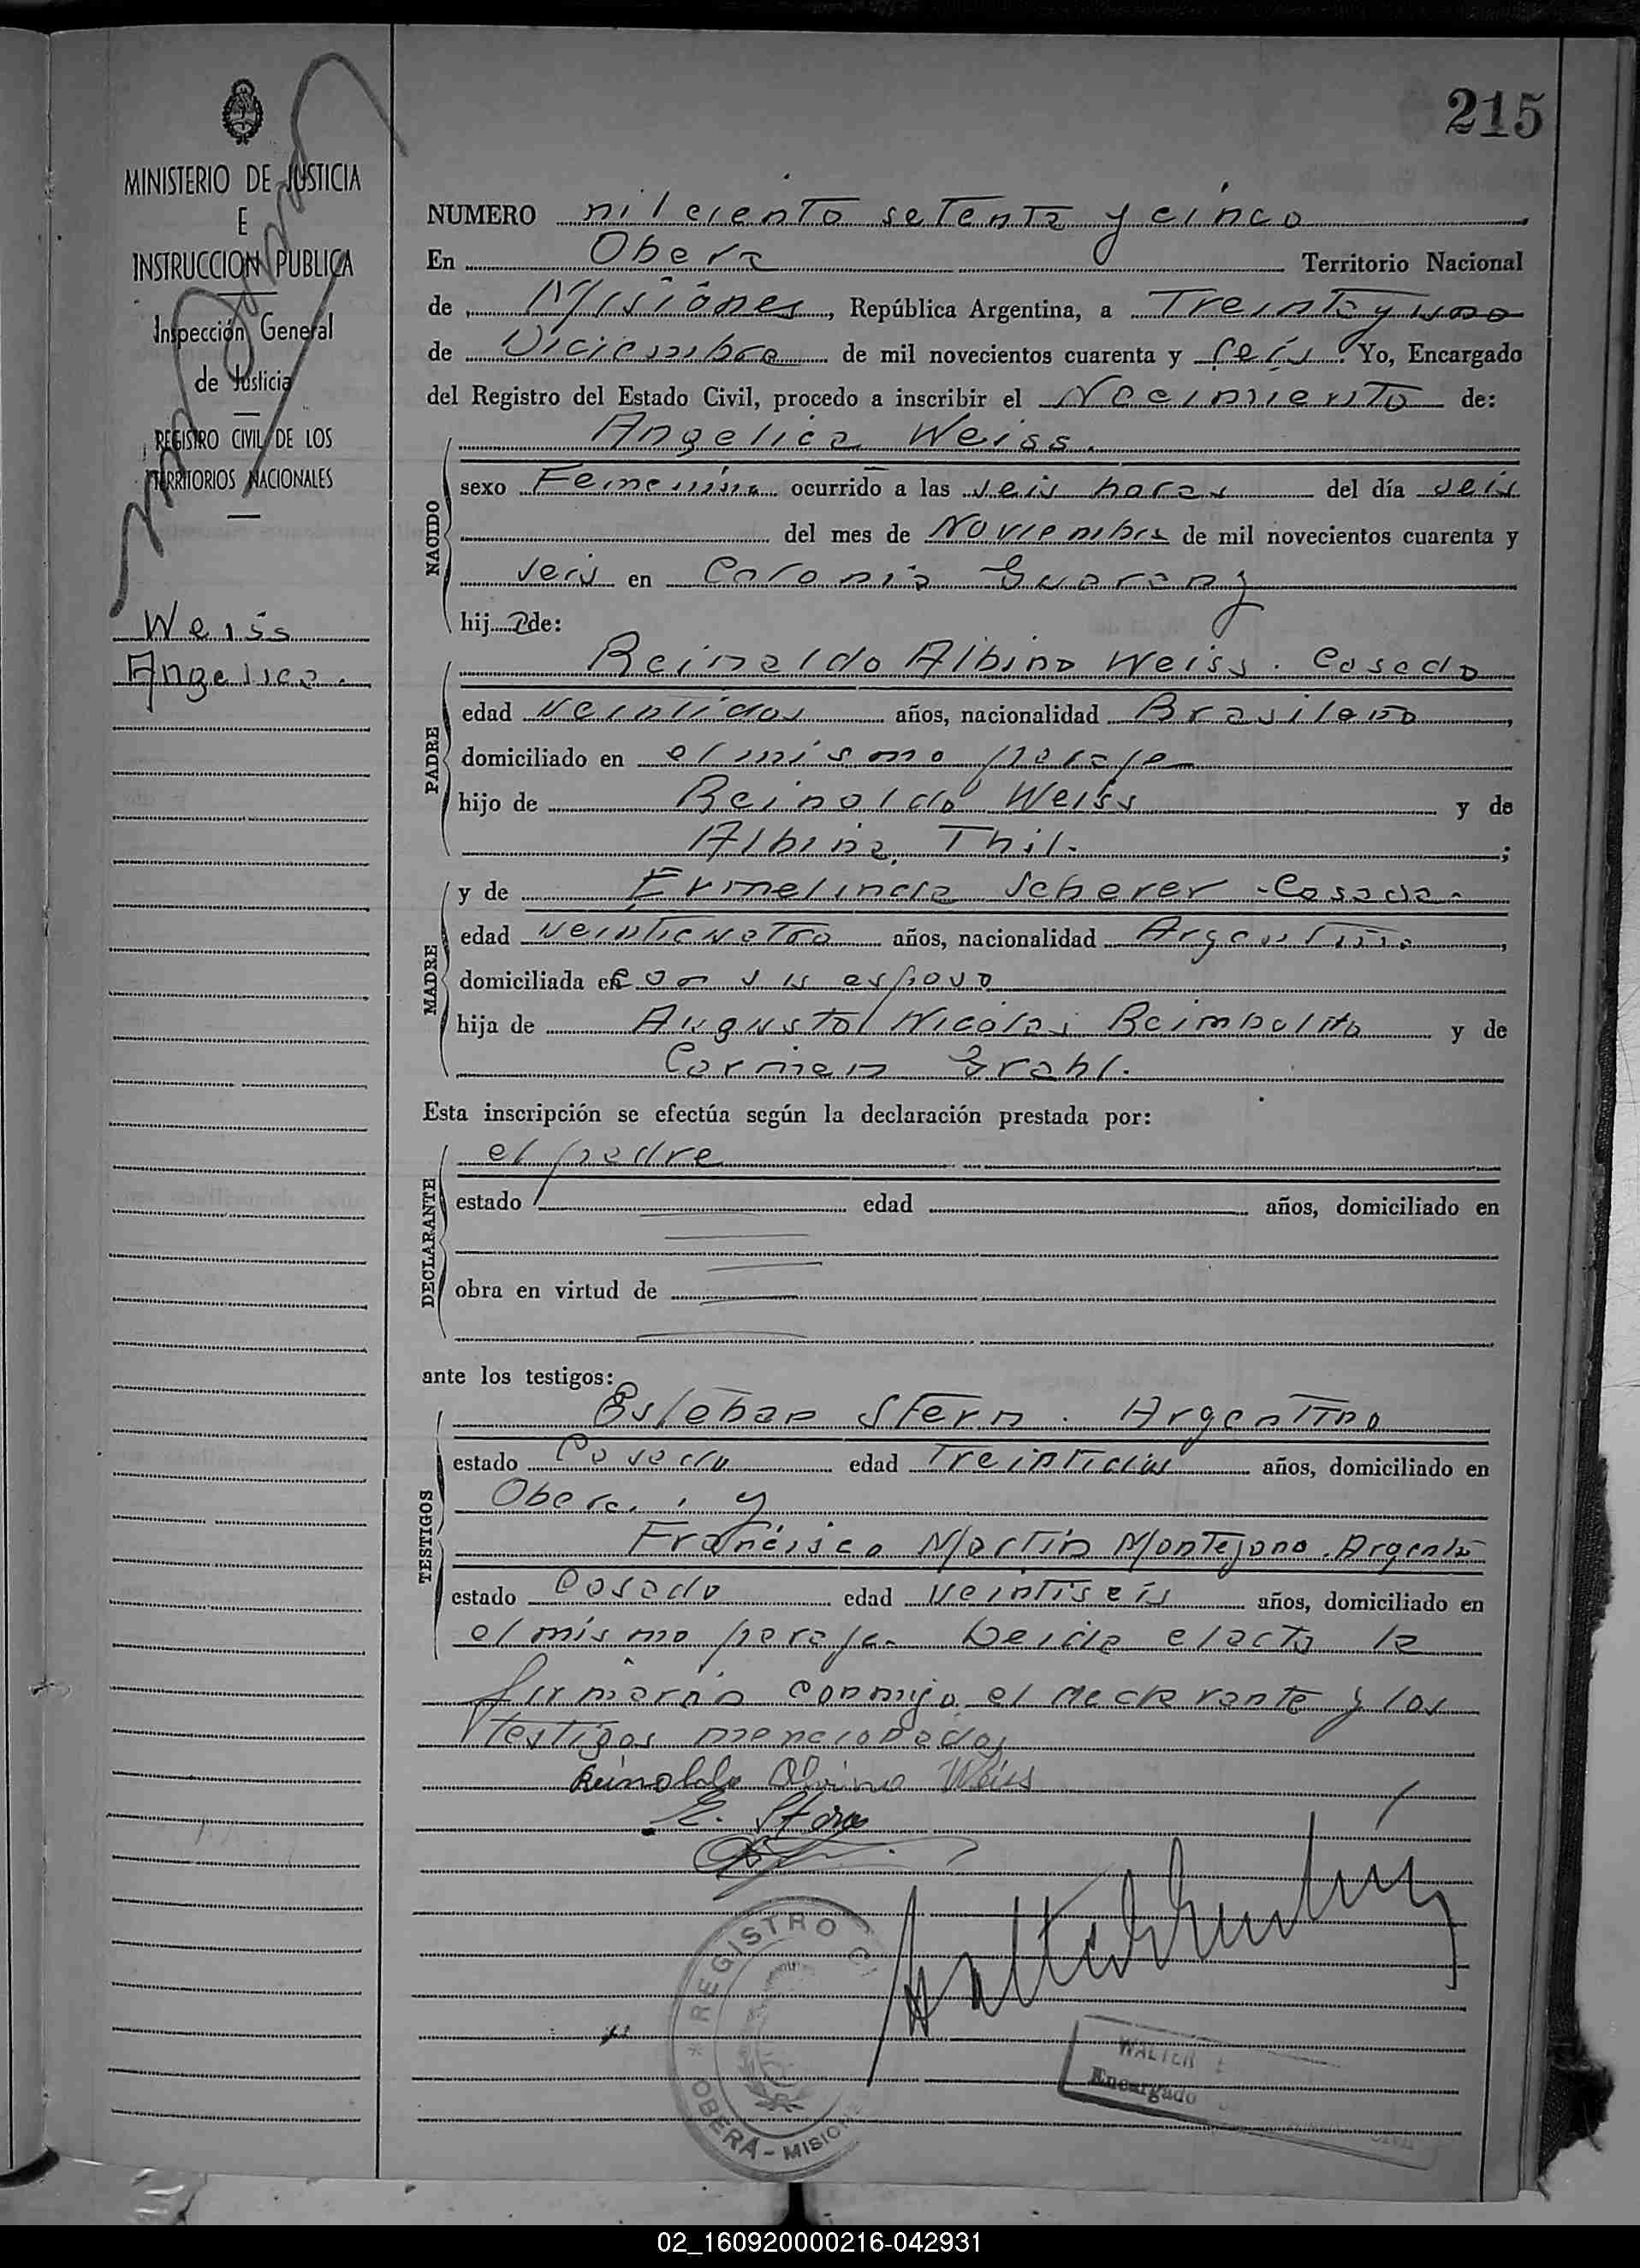 215
MINISTERIO DE JUSTICIA
E
INSTRUCCION PUBLICA
Inspección General
de Justicia
REGISTRO CIVIL DE LOS
TERRITORIOS NACIONALES
Weiss
Angelica.
NUMERO mil ciento setenta y cinco
En Obera Territorio Nacional
de Misiones, República Argentina, a Treinta y uno
de Diciembre de mil novecientos cuarenta y seis. Yo, Encargado
del Registro del Estado Civil, procedo a inscribir el Nacimiento de:
Angelica Weiss.
NACIDO
sexo Femenino ocurrido a las seis horas del día seis
del mes de Noviembre de mil novecientos cuarenta y
seis en Colonia Guarany
hija de:
PADRE
Reinaldo Albino Weiss. Casado
edad veintidos años, nacionalidad Brasileño,
domiciliado en el mismo paraje
hijo de Reinoldo Weiss y de
Albina Thil. ;
MADRE
y de Ermelinda Scherer - Casada -
edad veinticuatro años, nacionalidad Argentina,
domiciliada en con su esposo
hija de Augusto Nicolas y de
Carmen Grahl.
Esta inscripción se efectúa según la declaración prestada por:
DECLARANTE
el padre
estado edad años, domiciliado en
obra en virtud de
ante los testigos:
TESTIGOS
Esteban Stern. Argentino
estado Casado edad años, domiciliado en
Obera, y
Francisco Martin Montejano. Argentino
estado Casado edad veintiseis años, domiciliado en
el mismo paraje. Leida el acta la
firmarán conmigo el declarante y los
testigos mencionados
Reinoldo Alvino Weiss
E. Stern
REGISTRO CI
OBERÁ - MISIONES
WALTER
Encargado
02_160920000216-042931